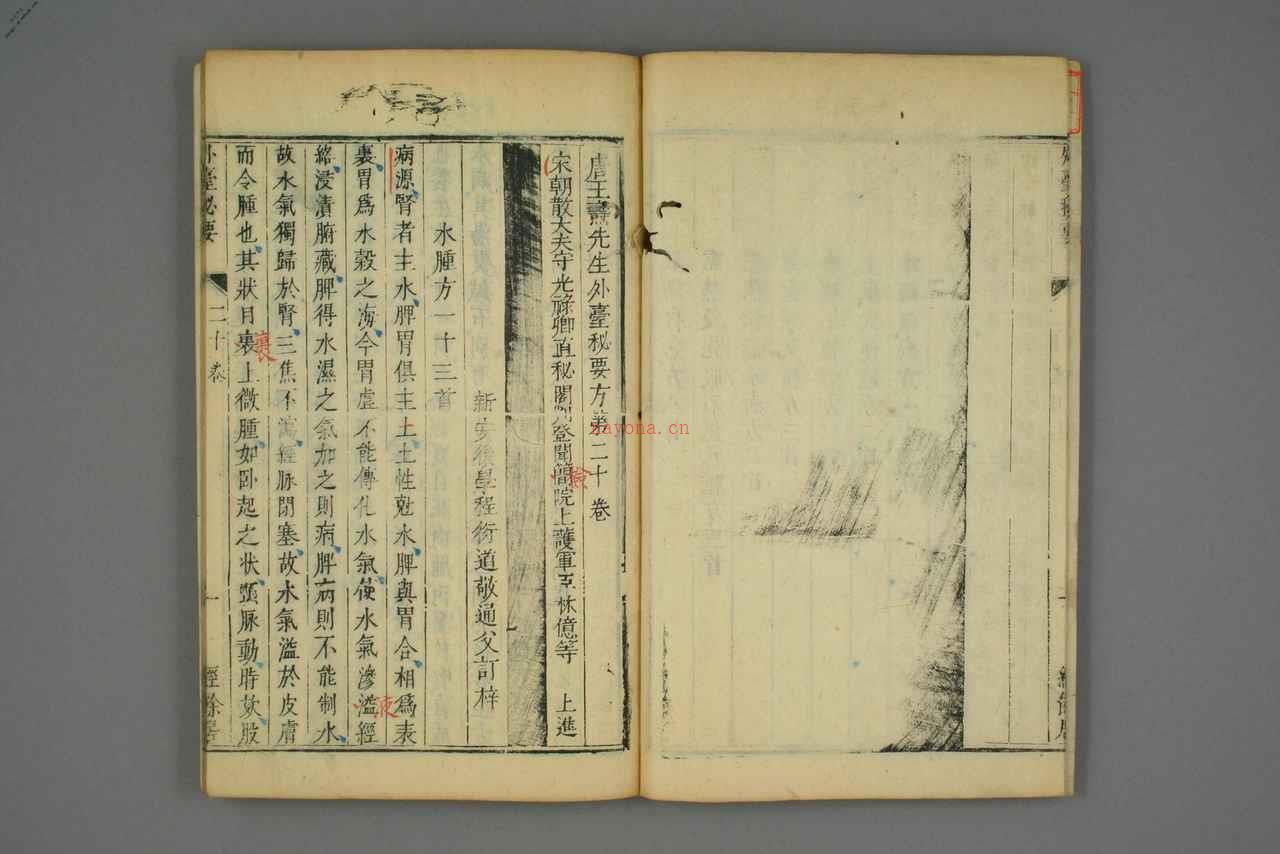 唐王燾先生外臺秘要方第二十卷
宋朝散大夫守光祿卿直秘閣判登聞簡院上護軍臣林億等 上進
檢
新安後學程衍道敬通父訂梓
水腫方一十三首
病源腎者主水脾胃俱主土土性尅水脾與胃合相爲表
裏胃爲水穀之海今胃虛不能傳化水氣使水氣滲溢經
液
絡浸漬腑藏脾得水濕之氣加之則病脾病則不能制水
故水氣獨歸於腎三焦不瀉經脉閉塞故水氣溢於皮膚
而令腫也其狀目裹上微腫如卧起之状頸脉動時欬股
裹
外臺秘要
二十卷
一
經餘居
nayona.cn